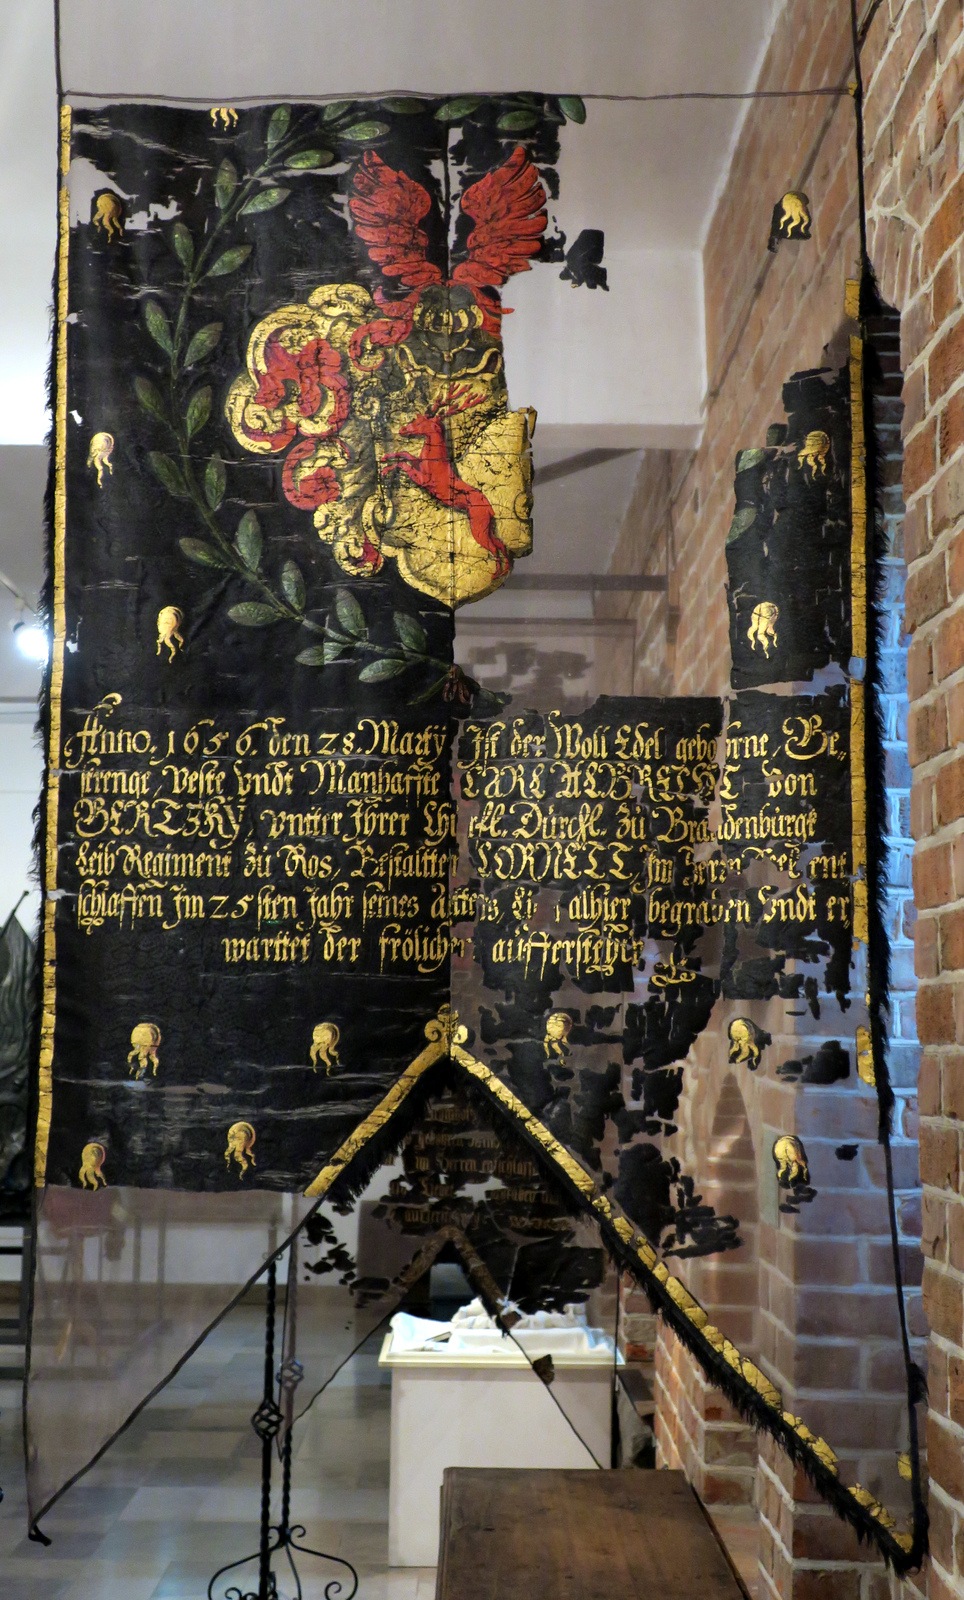 Anno. 1656. den 28. Martÿ Ist der Woll Edel gebohrne, Ge„
strenge, Veste Vndt Manhaffte CARL ALBRECHT von
BERTZKŸ, vnter Ihrer Chürfl. Dürchl. Zü Brandenbürgk
Leib Regiment Zü Ros, Bestalter CORNETT, Im
schlaffen Im 25sten Jahr seines Alters, alhier begraben Vndt er
wartet der frölicher aüffersteh